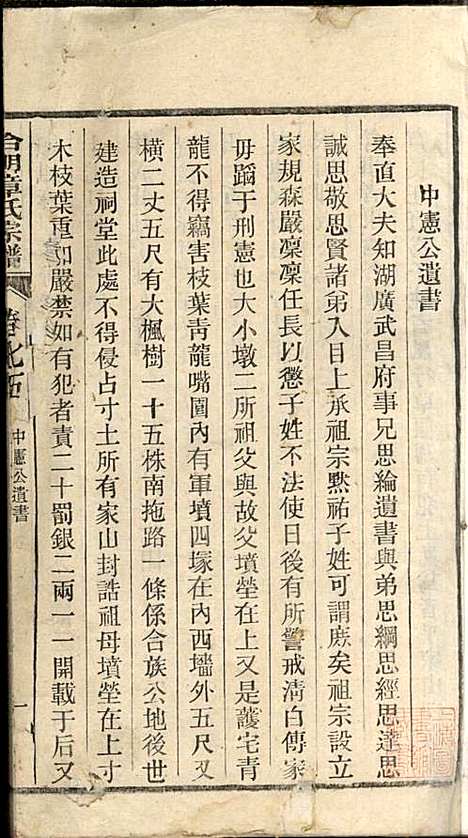 中憲公遺書
奉直大夫知湖廣武昌府事兄思綸遺書與弟思綱思經思達思
誠思敬思賢諸弟入日上承祖宗黙祐子姓可謂庶矣祖宗設立
家規森嚴凜凜任長以懲子姓不法使日後有所警戒淸白傳家
毋蹈于刑憲也大小墩二所祖父與故父墳塋在上又是護宅青
龍不得竊害枝葉靑龍嘴園內有軍墳四塚在內西墻外五尺又
橫二丈五尺有大楓樹一十五株南拖路一條係合族公地後世
建造祠堂此處不得侵占寸土所有家山封誥祖母墳塋在上寸
木枝葉重如嚴禁如有犯者責二十罰銀二兩一一開載于后又
章氏宗譜
中憲公遺書
一